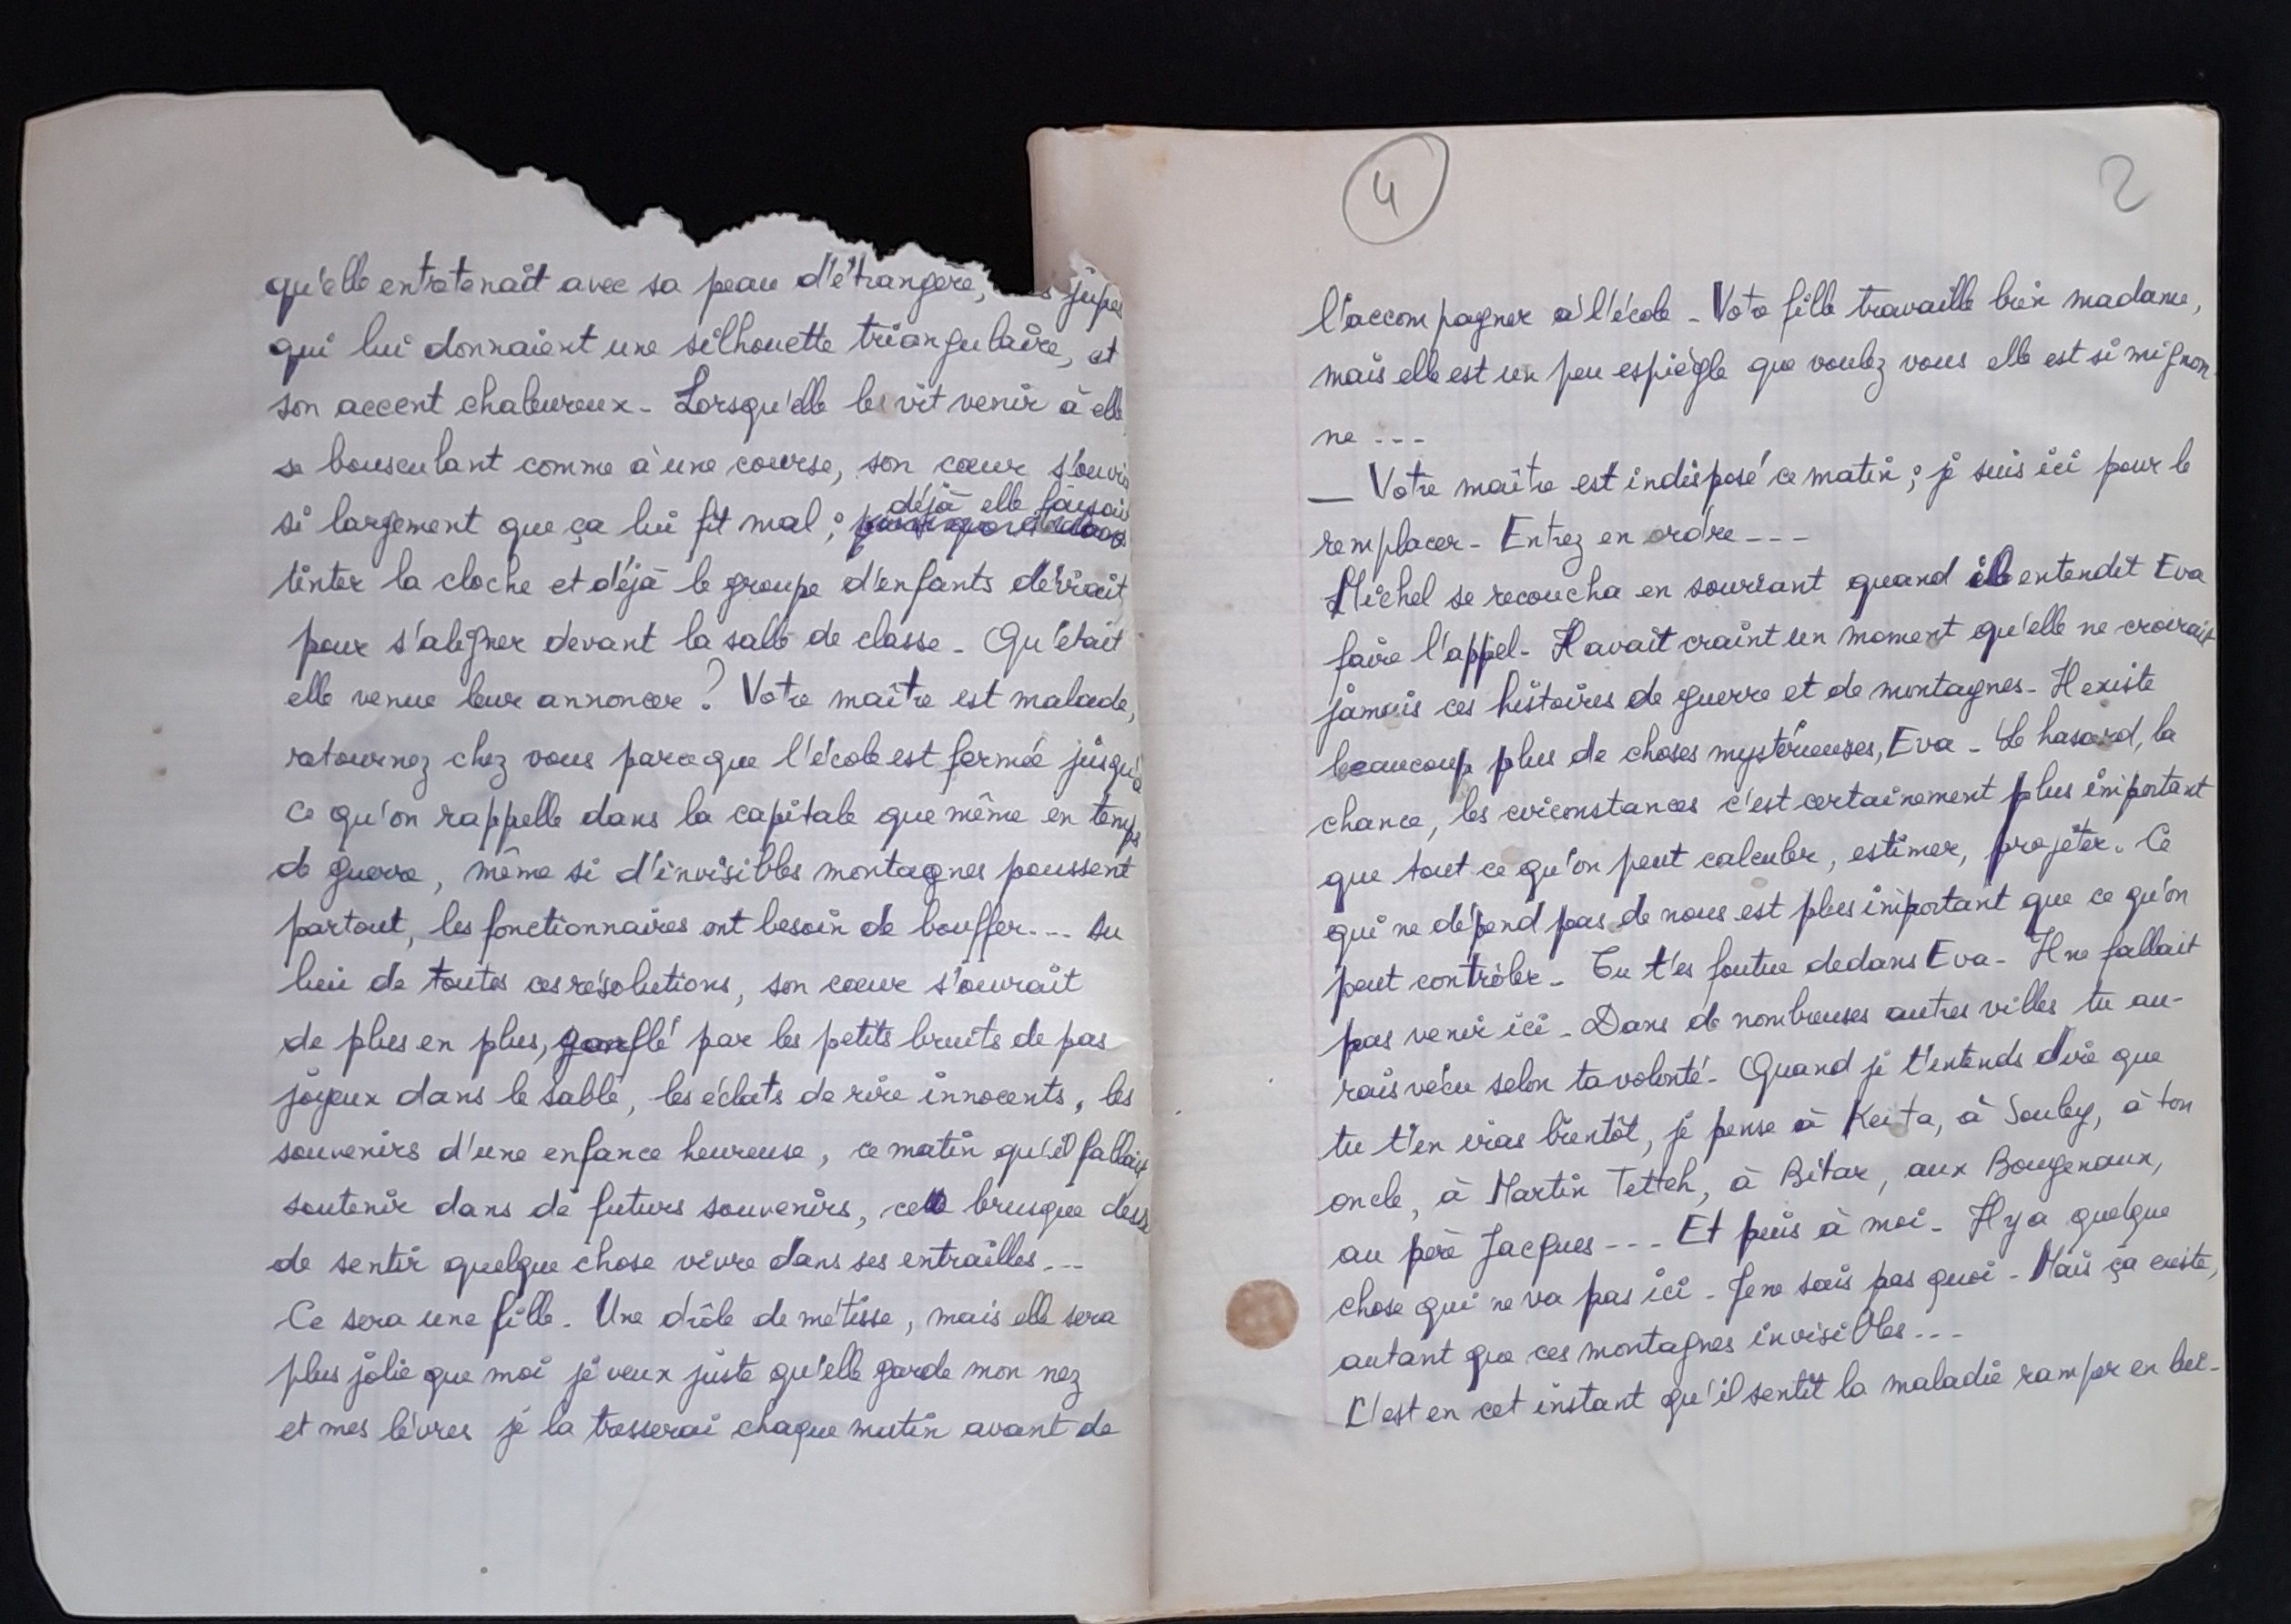 qu'elle entretenait avec sa peau d'étrangère, jupes
qui lui donnaient une silhouette triangulaire, et
son accent chaleureux - Lorsqu'elle les vit venir à elle
se bousculant comme à une course, son cœur s'ouvrit
déjà elle faisait
si largement que ça lui fit mal ;
tinter la cloche et déjà le groupe d'enfants déviait
pour s'aligner devant la salle de classe - Qu'était
elle venue leur annoncer ? Votre maître est malade,
retournez chez vous parce que l'école est fermée jusqu'à
ce qu'on rappelle dans la capitale que même en temps
de guerre, même si d'invisibles montagnes poussent
partout, les fonctionnaires ont besoin de bouffer --- Au
lieu de toutes ces résolutions, son cœur s'ouvrait
de plus en plus, gonflé par les petits bruits de pas
joyeux dans le sable, les éclats de rire innocents, les
souvenirs d'une enfance heureuse, ce matin qu'il fallait
soutenir dans de futurs souvenirs, cette brusque
de sentir quelque chose vivre dans ses entrailles ---
Ce sera une fille. Une drôle de métisse, mais elle sera
plus jolie que moi je veux juste qu'elle garde mon nez
et mes lèvres je la tresserai chaque matin avant de
4
2
l'accompagner à l'école - Votre fille travaille bien madame,
mais elle est un peu espiègle que voulez vous elle est si mignon
ne ---
— Votre maître est indisposé ce matin ; je suis ici pour le
remplacer - Entrez en ordre ---
Michel se recoucha en souriant quand il entendit Eva
faire l'appel - Il avait craint un moment qu'elle ne croirait
jamais ces histoires de guerre et de montagnes - Il existe
beaucoup plus de choses mystérieuses, Eva - Le hasard, la
chance, les circonstances c'est certainement plus important
que tout ce qu'on peut calculer, estimer, projeter. Ce
qui ne dépend pas de nous est plus important que ce qu'on
peut contrôler - Tu t'es foutue dedans Eva - Il ne fallait
pas venir ici - Dans de nombreuses autres villes tu au-
rais vécu selon ta volonté - Quand je t'entends dire que
tu t'en iras bientôt, je pense à Keita, à Souley, à ton
oncle, à Martin Tetteh, à Bitar, aux Bougenaux,
au père Jacques --- Et puis à moi - Il y a quelque
chose qui ne va pas ici - Je ne sais pas quoi - Mais ça existe,
autant que ces montagnes invisibles ---
C'est en cet instant qu'il sentit la maladie ramper en lui -